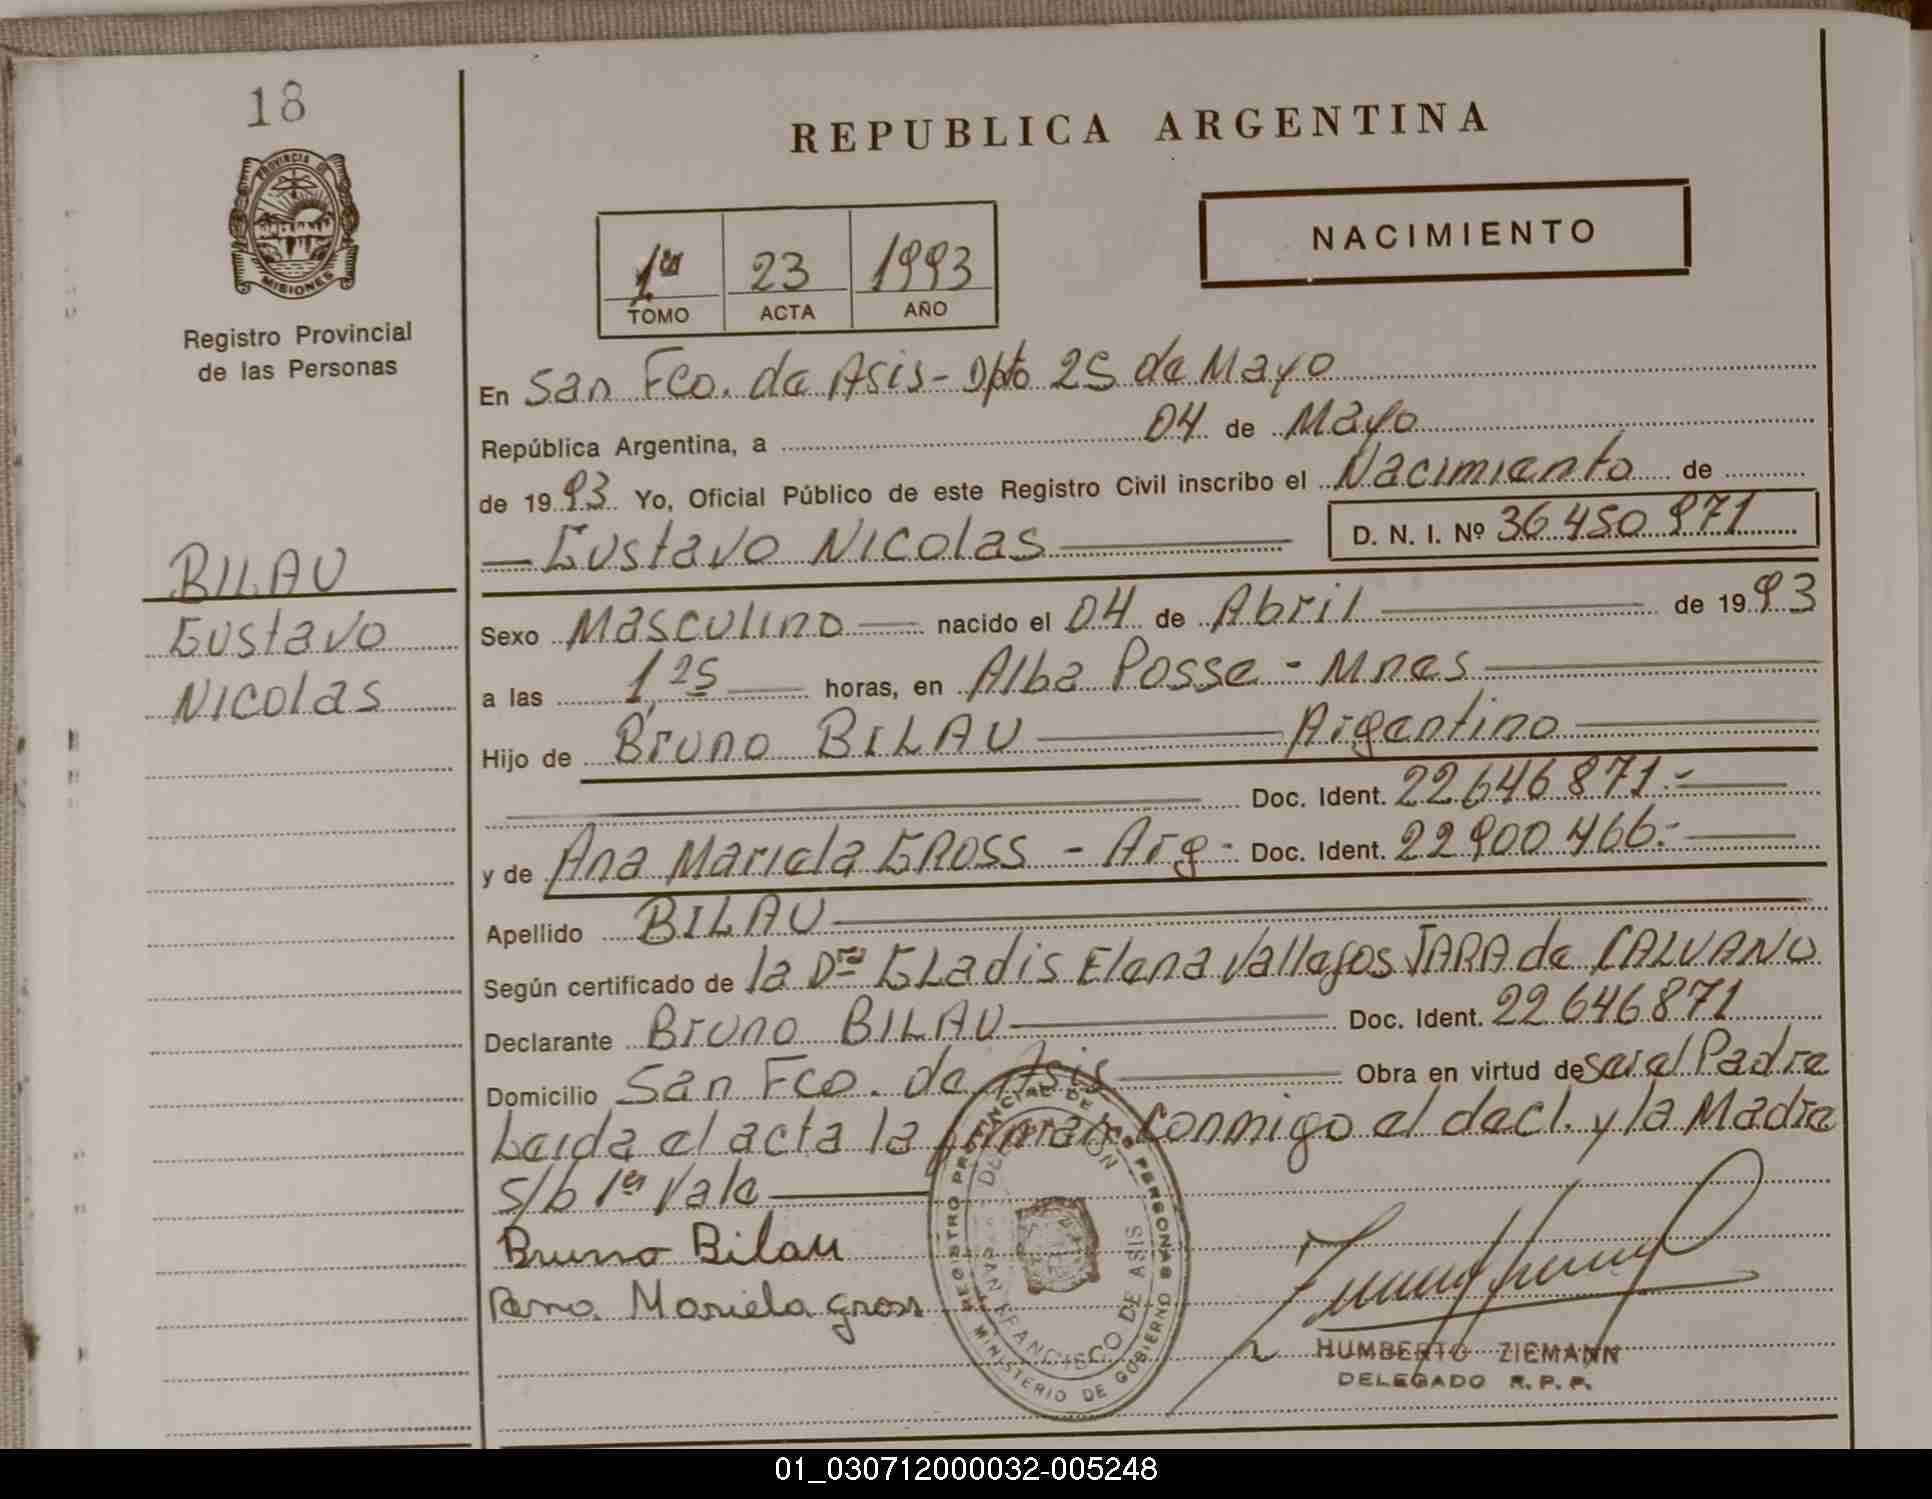 18
PROVINCIA DE
MISIONES
Registro Provincial
de las Personas
BILAU
Gustavo
Nicolas
REPUBLICA ARGENTINA
NACIMIENTO
1er 23 1993
TOMO ACTA AÑO
En San Fco. de Asis - Dpto 25 de Mayo
República Argentina, a 04 de Mayo
de 1993 Yo, Oficial Público de este Registro Civil inscribo el Nacimiento de
Gustavo Nicolas D. N. I. Nº 36 450 971
Sexo Masculino nacido el 04 de Abril de 1993
a las 1,25 horas, en Alba Posse - Mnes
Hijo de Bruno BILAU Argentino
Doc. Ident. 22 646 871.-
y de Ana Mariela GROSS - Arg - Doc. Ident. 22 900 466.-
Apellido BILAU
Según certificado de la Dra GLadis Elena Vallejos JARA de CALVANO
Declarante Bruno BILAU Doc. Ident. 22 646 871
Domicilio San Fco. de Asis Obra en virtud de ser el Padre
Leida el acta la firman conmigo el decl. y la Madre
s/b 1er Vale
Bruno Bilau
Ana Mariela Gross
REGISTRO PROVINCIAL DE LAS PERSONAS
DELEGACION
SAN FRANCISCO DE ASIS
MINISTERIO DE GOBIERNO
HUMBERTO ZIEMANN
DELEGADO R. P. P.
01_030712000032-005248